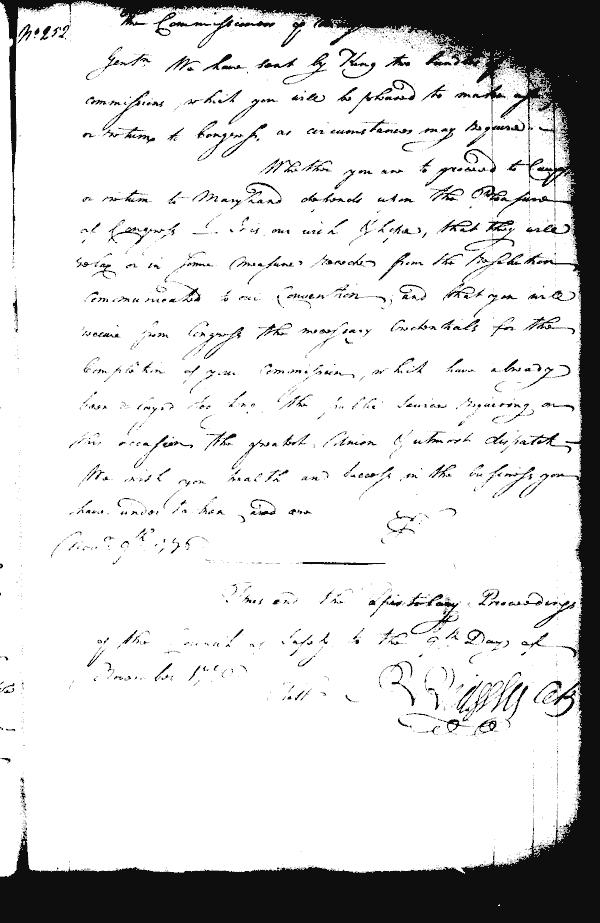 No 252
the Commissioners of
Gentn We have sent by King two bundles of
commissions, which you will be pleased to make use
or return to Congress, as circumstances may require.
Whether you are to proceed to Camp
or return to Maryland depends upon the Pleasure
of Congress — It is our wish & hope, that they will
relax or in some measure recede from the Resolution
communicated to our Convention, and that you will
receive from Congress the necessary Credentials for the
Completion of your Commission, which have already
been delayed too long, the public Service requiring on
this occasion the greatest Union & utmost dispatch —
We wish you health and Success in the business you
have undertaken and are &c
Novr 9th 1776
Thus end the Epistolary Proceedings
of the Council of Safety to the 9th Day of
November 1776
Test R Ridgely Clk